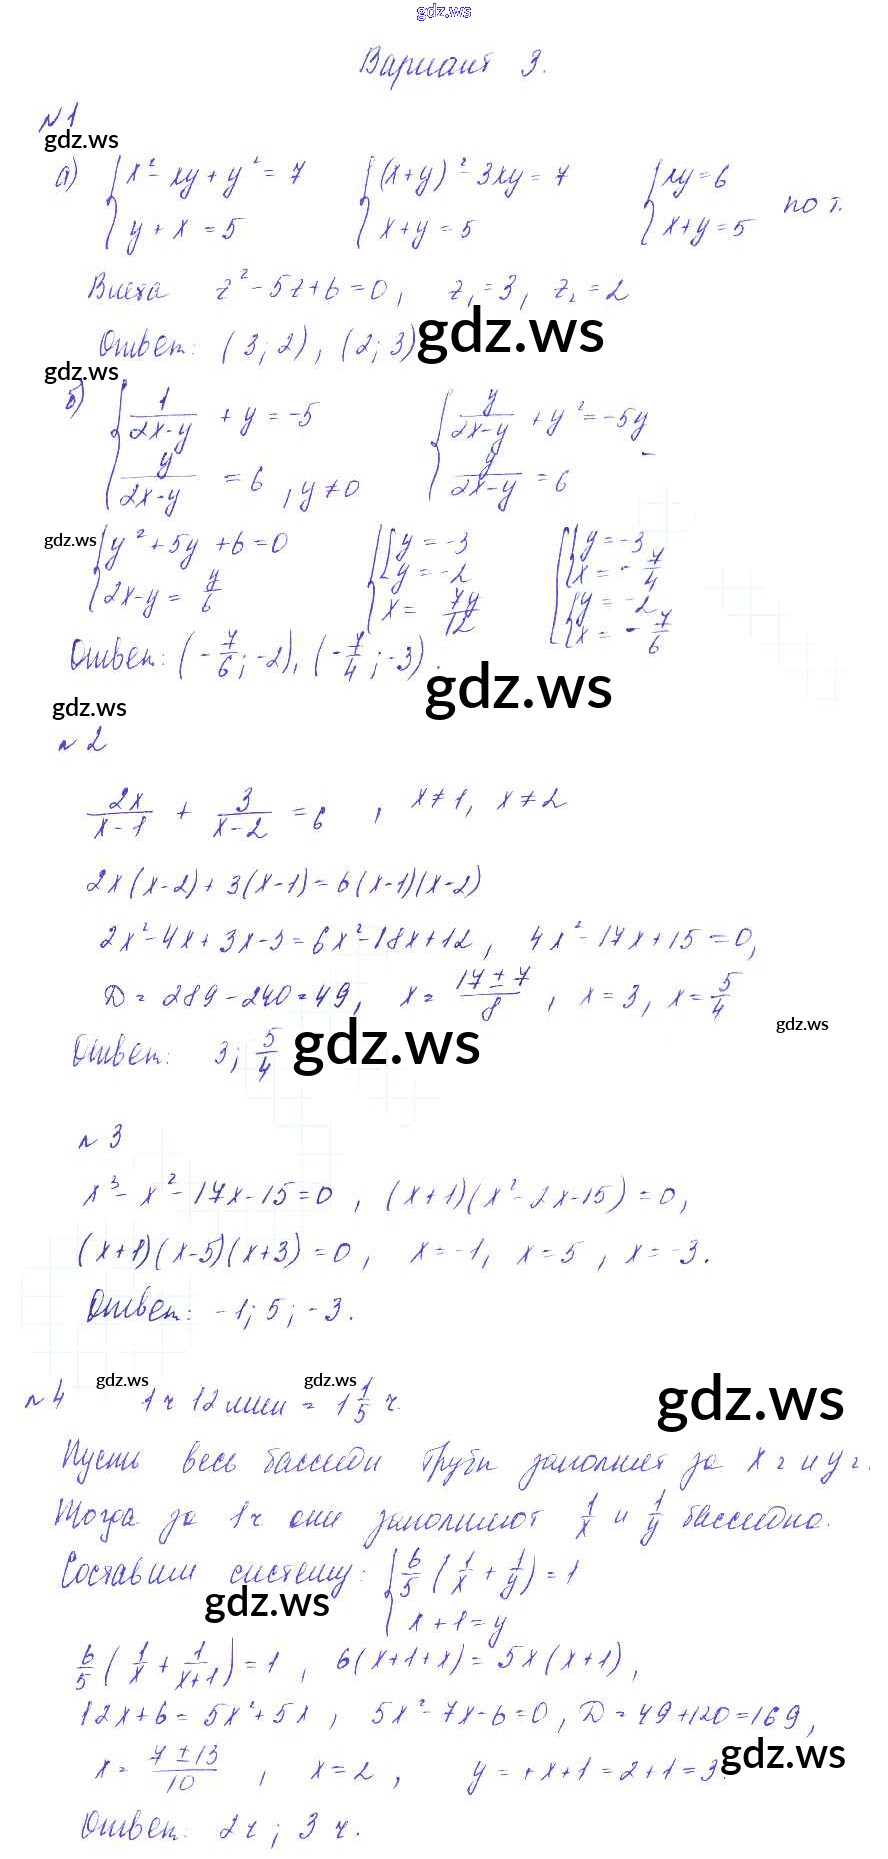 gdz.ws
Вариант 3.
№1
gdz.ws
а) { x² - xy + y² = 7 { (x+y)² - 3xy = 7 { xy = 6
y + x = 5 x + y = 5 x + y = 5 по т.
Виета z² - 5z + 6 = 0, z₁ = 3, z₂ = 2
Ответ: (3; 2), (2; 3) gdz.ws
gdz.ws
б) { 1/(2x-y) + y = -5 { y/(2x-y) + y² = -5y
y/(2x-y) = 6, y ≠ 0 y/(2x-y) = 6
gdz.ws { y² + 5y + 6 = 0 { [ y = -3 [ { y = -3
2x-y = y/6 y = -2 x = -7/4
x = 7y/12 { y = -2
x = -7/6
Ответ: (-7/6; -2), (-7/4; -3).
gdz.ws
gdz.ws
№2
2x/(x-1) + 3/(x-2) = 6, x ≠ 1, x ≠ 2
2x(x-2) + 3(x-1) = 6(x-1)(x-2)
2x² - 4x + 3x - 3 = 6x² - 18x + 12, 4x² - 17x + 15 = 0,
D = 289 - 240 = 49, x = (17 ± 7)/8, x = 3, x = 5/4
gdz.ws
Ответ: 3; 5/4 gdz.ws
№3
x³ - x² - 17x - 15 = 0, (x+1)(x² - 2x - 15) = 0,
(x+1)(x-5)(x+3) = 0, x = -1, x = 5, x = -3.
Ответ: -1; 5; -3.
gdz.ws gdz.ws
№4 1 ч 12 мин = 1 1/5 ч. gdz.ws
Пусть весь бассейн трубы заполнят за x ч и y ч.
Тогда за 1 ч они заполняют 1/x и 1/y бассейна.
Составим систему: { 6/5 (1/x + 1/y) = 1
gdz.ws x + 1 = y
6/5 (1/x + 1/(x+1)) = 1, 6(x+1+x) = 5x(x+1),
12x + 6 = 5x² + 5x, 5x² - 7x - 6 = 0, D = 49 + 120 = 169,
x = (7 ± 13)/10, x = 2, y = +x+1 = 2+1 = 3. gdz.ws
Ответ: 2 ч; 3 ч.